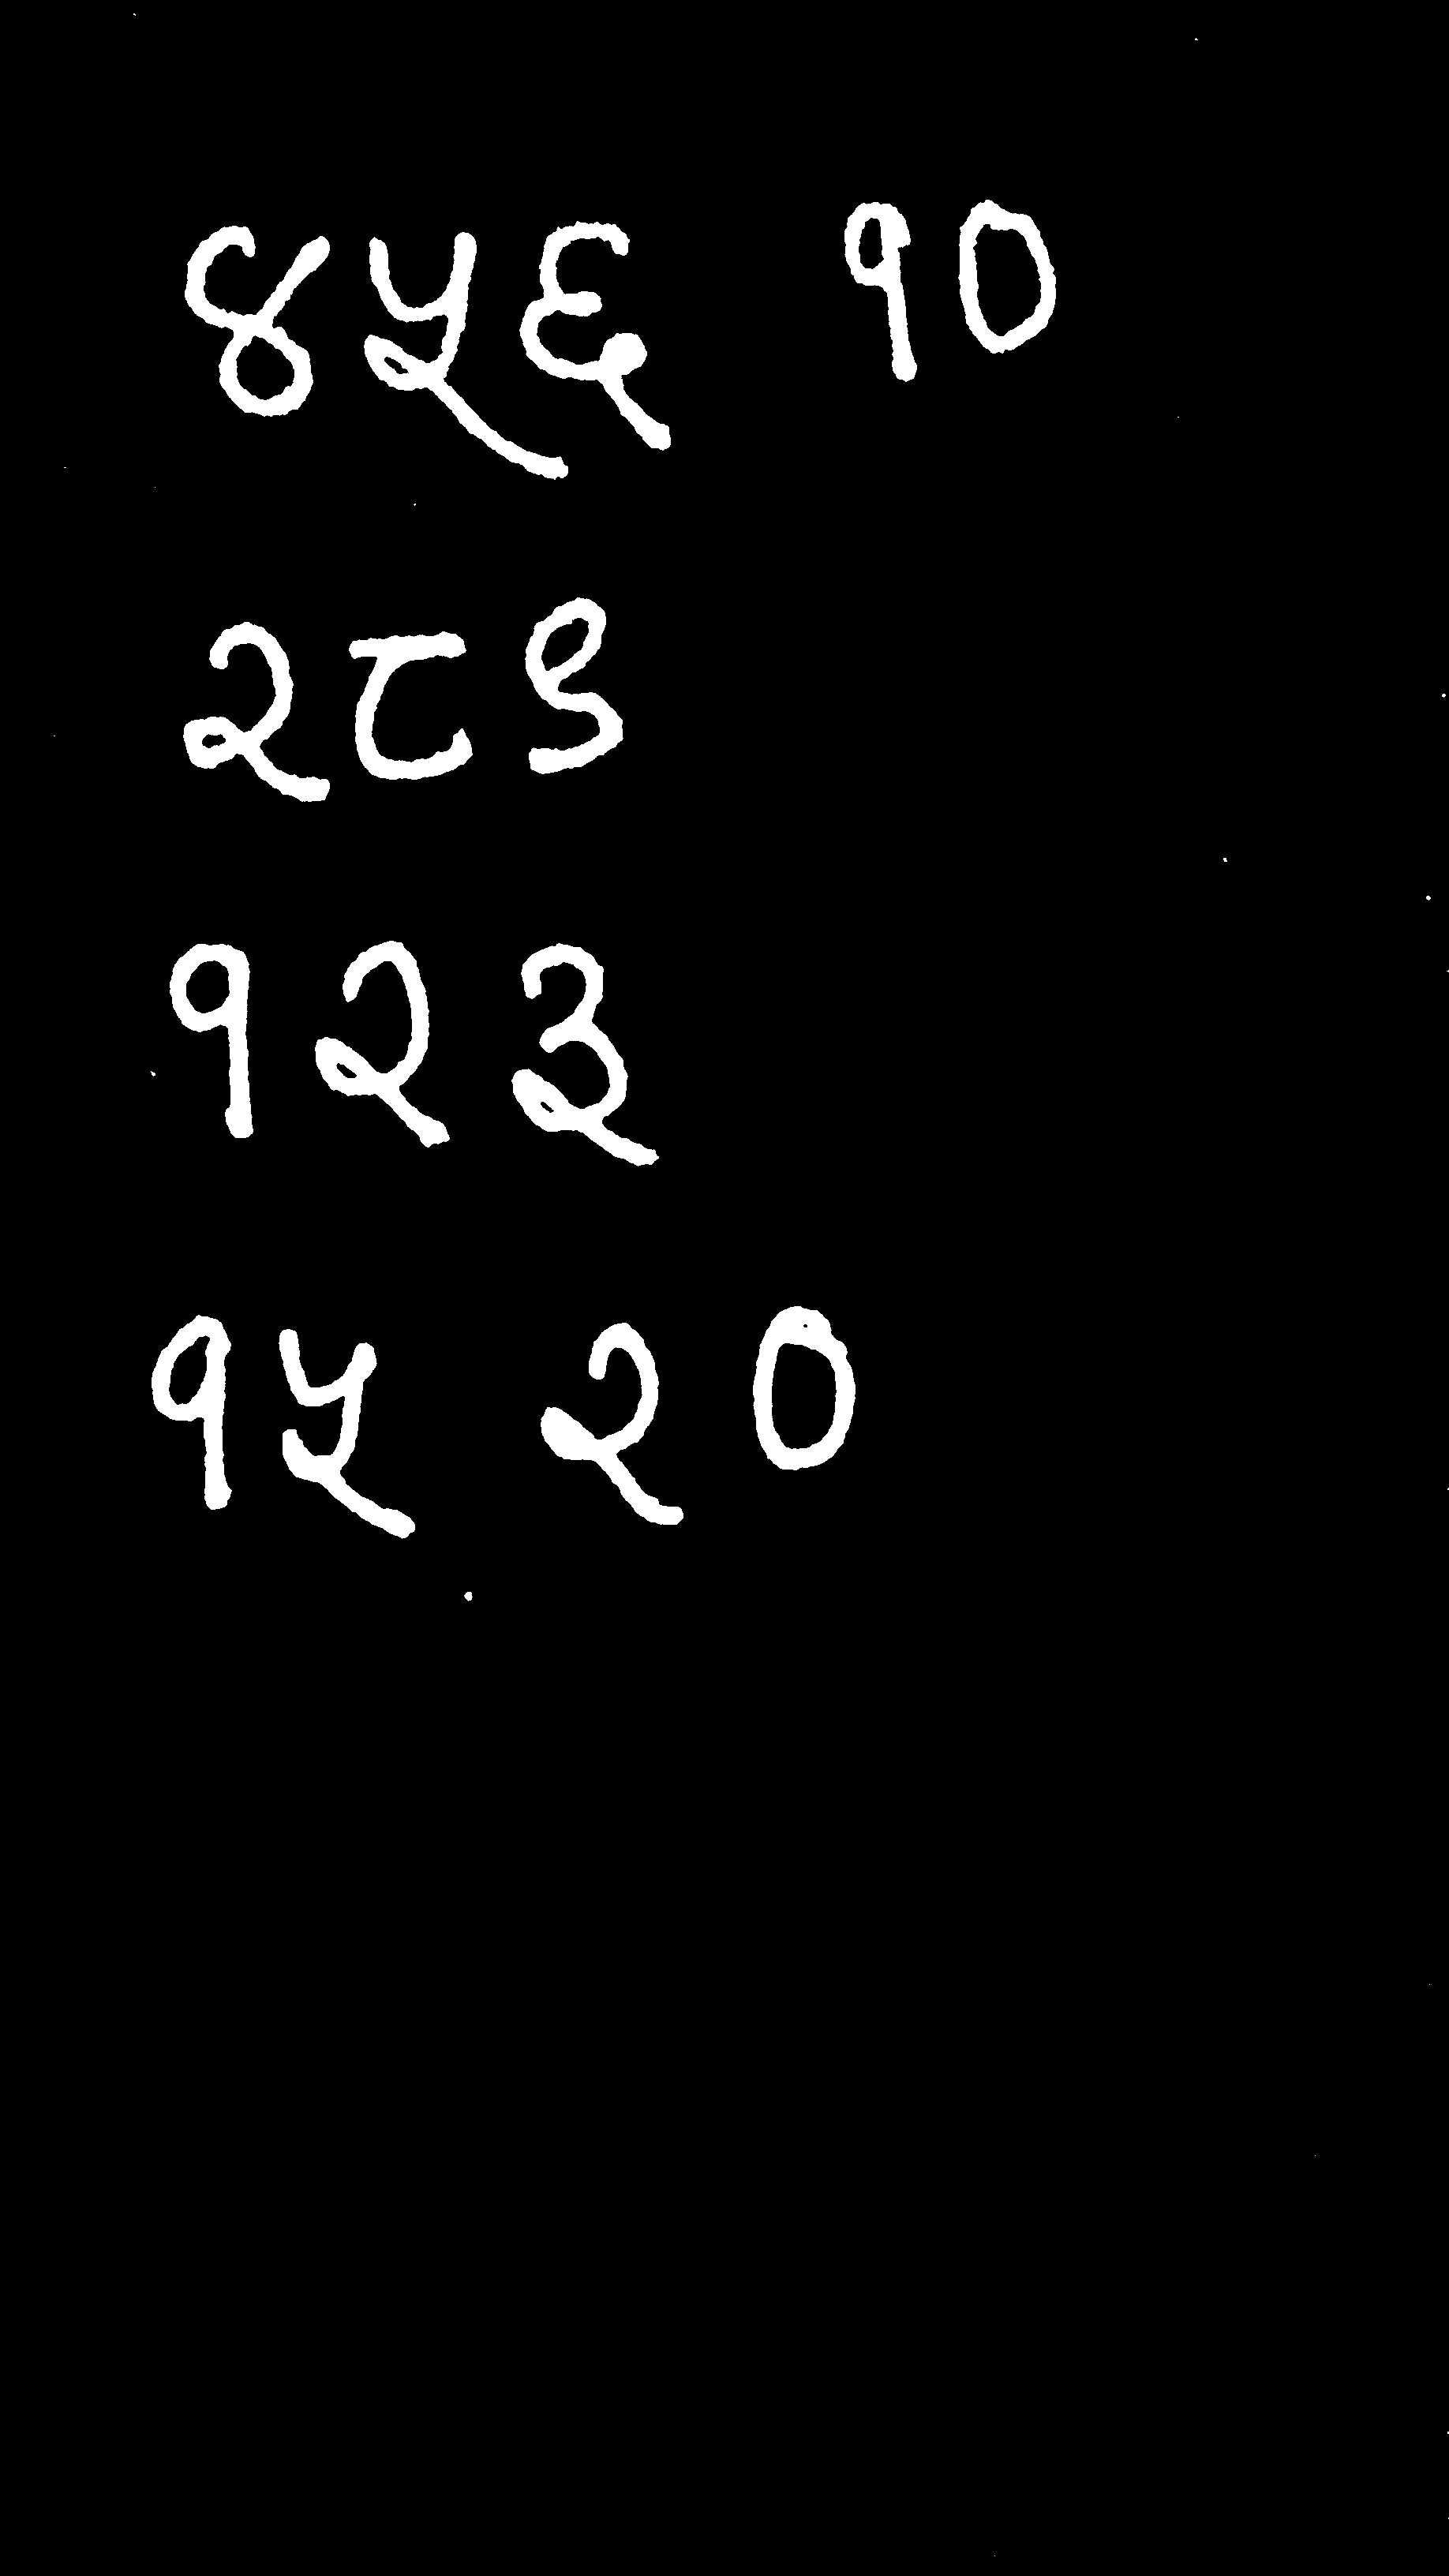 ४५६ १०
२८९
१२३
१५ २०